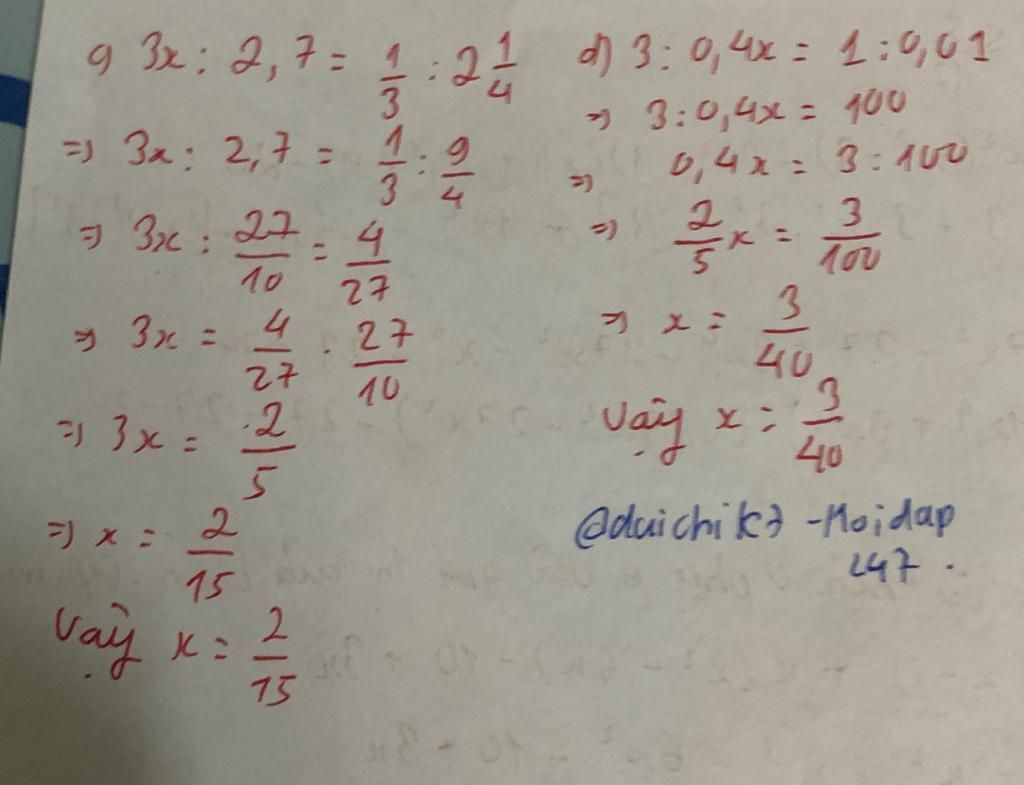 c) 3x : 2,7 = 1/3 : 2 1/4
=> 3x : 2,7 = 1/3 : 9/4
=> 3x : 27/10 = 4/27
=> 3x = 4/27 . 27/10
=> 3x = 2/5
=> x = 2/15
Vậy x = 2/15
d) 3 : 0,4x = 1 : 0,01
=> 3 : 0,4x = 100
=> 0,4x = 3 : 100
=> 2/5 x = 3/100
=> x = 3/40
Vậy x = 3/40
@duichik7 - Hoidap
247 .